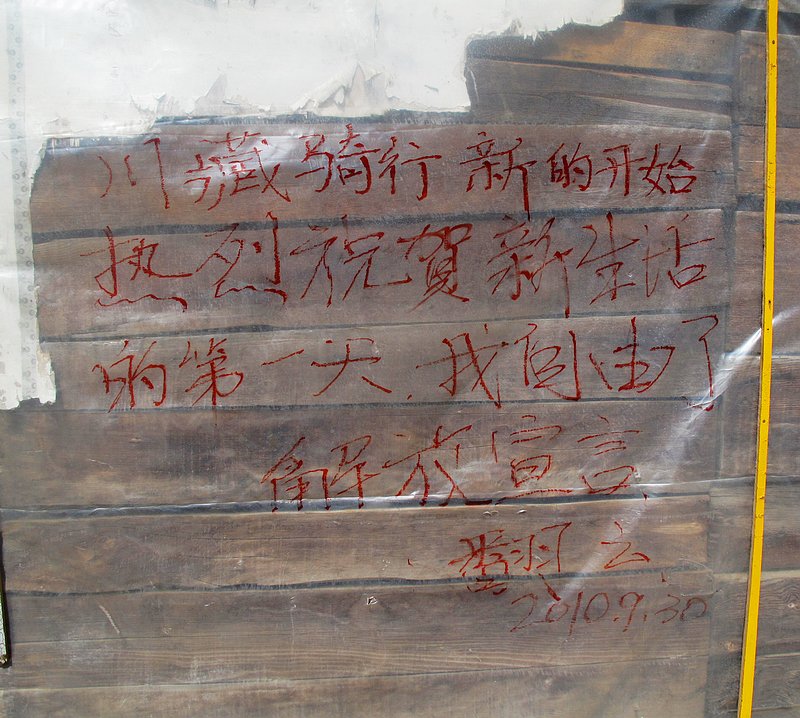 川藏骑行 新的开始
热烈祝贺新生活
的第一天.我自由了
解放宣言
云
2010.9.30